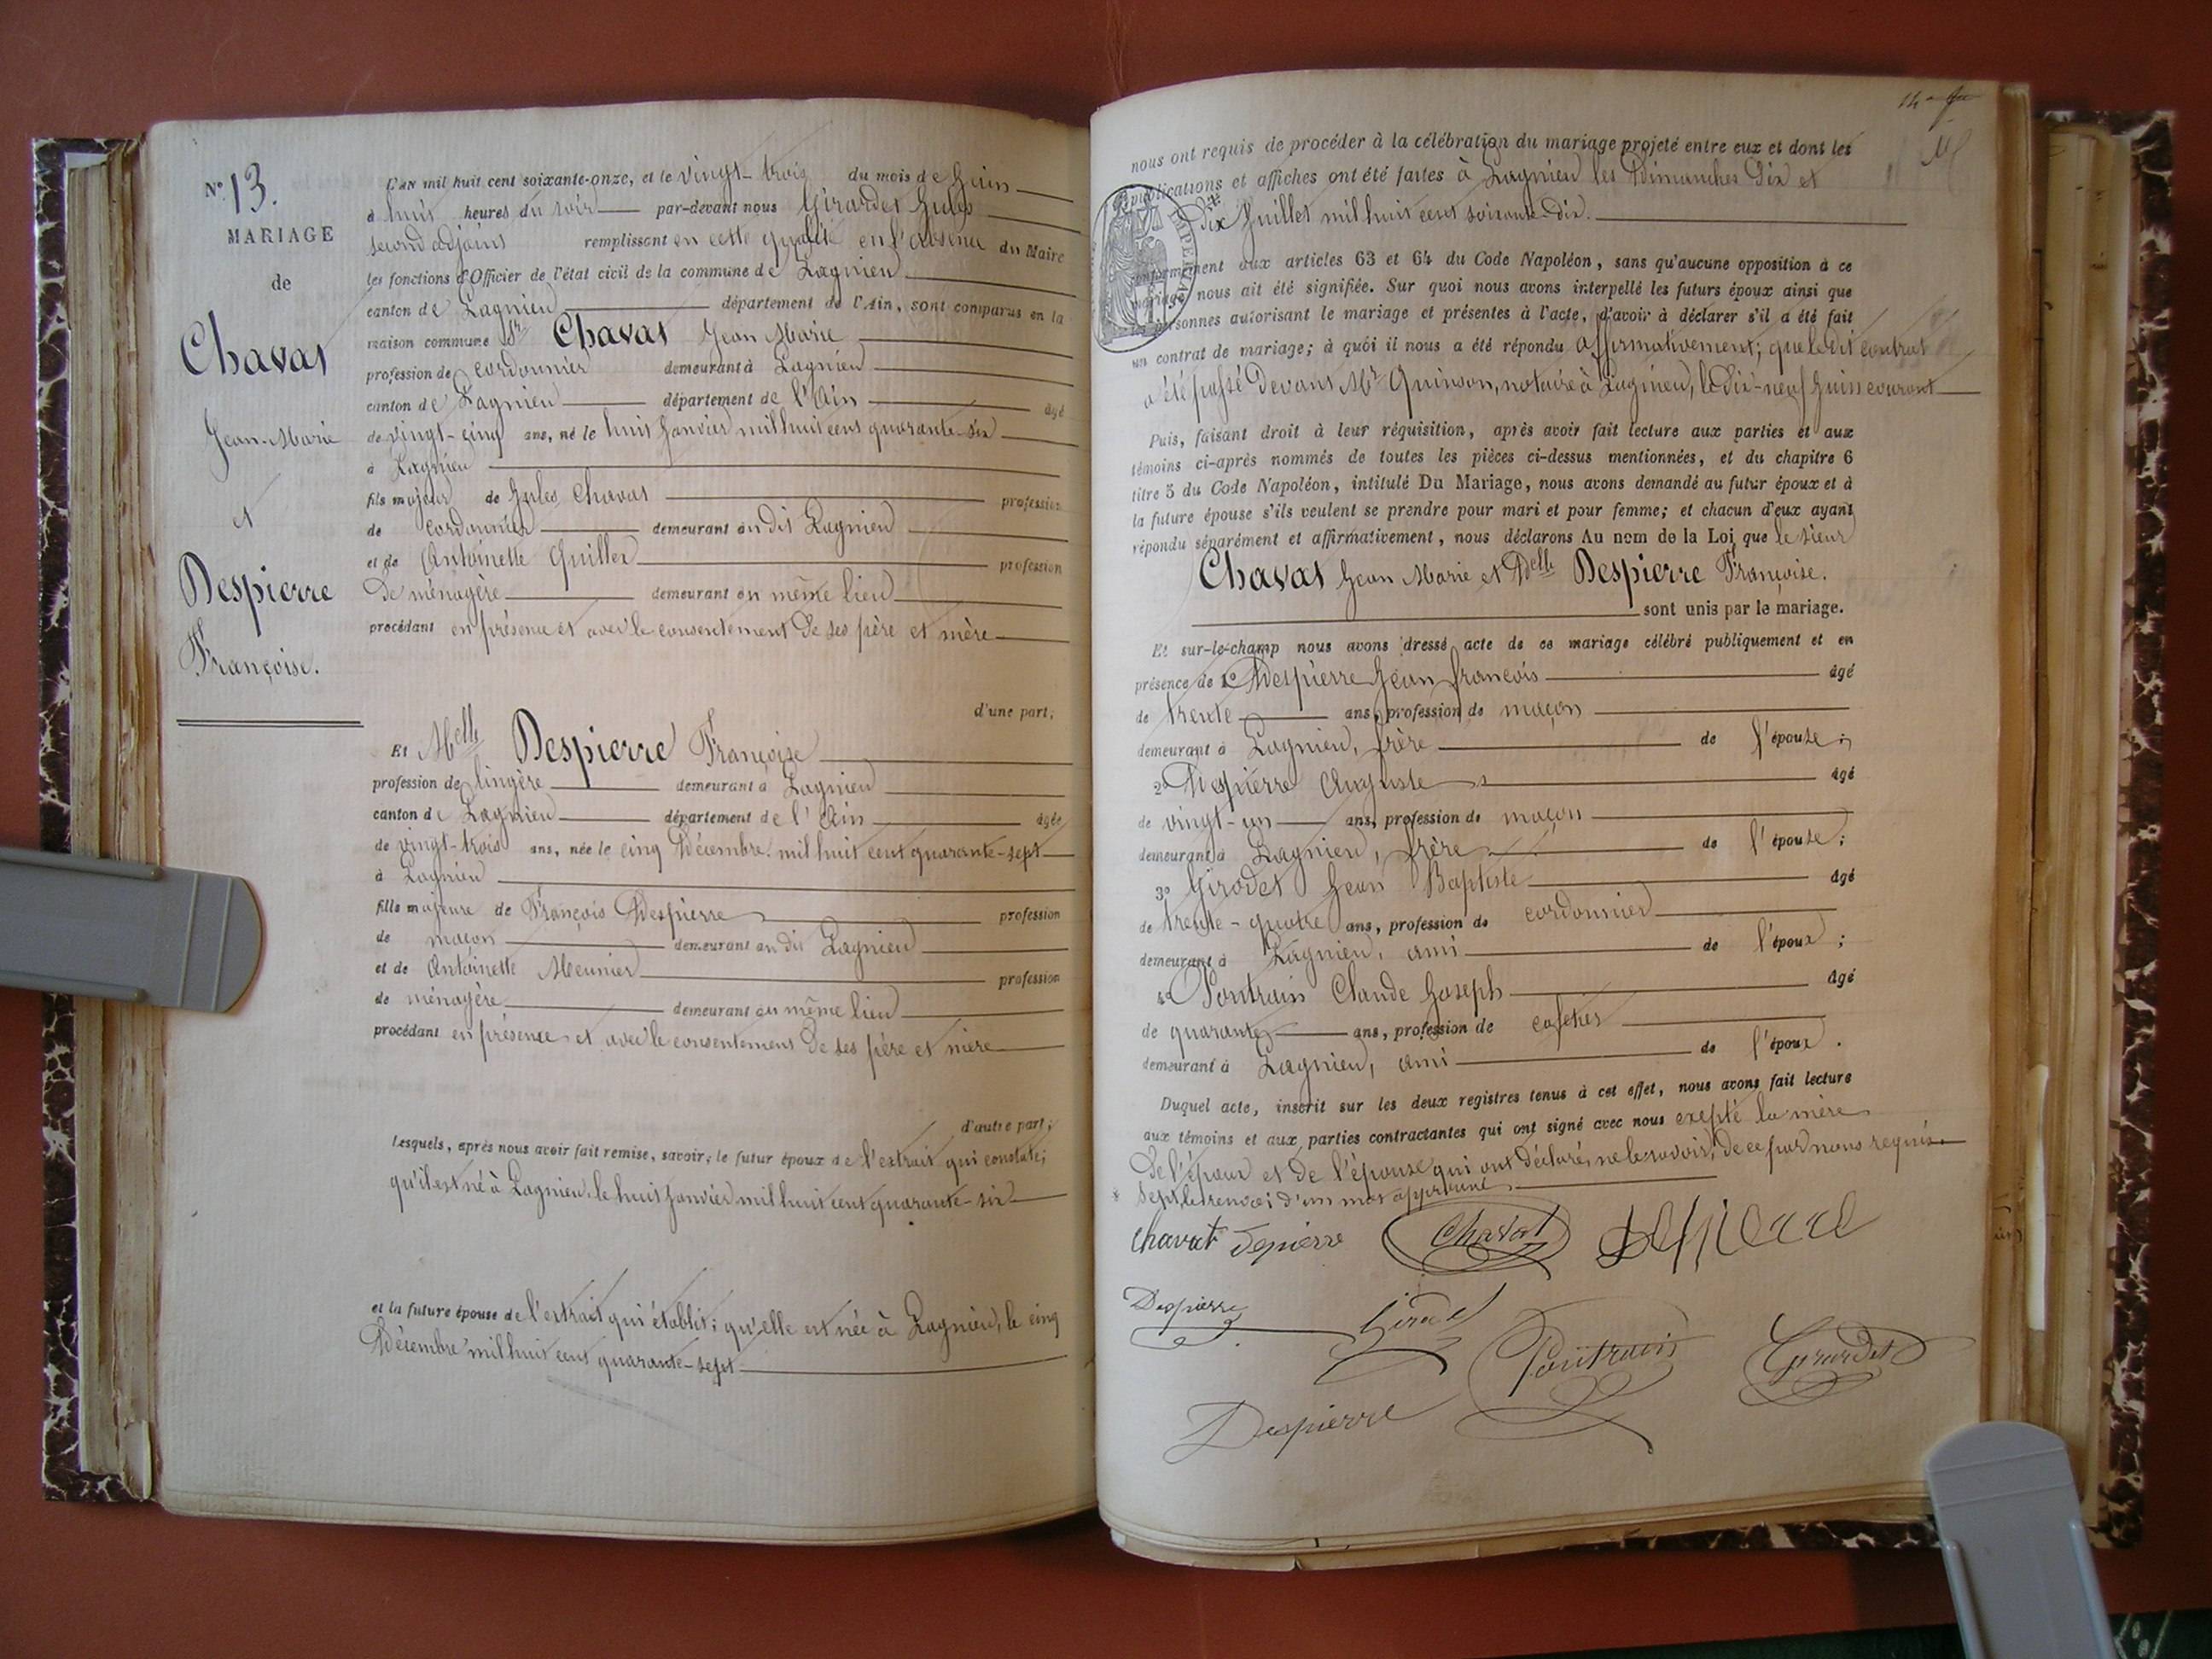 N° 13.
MARIAGE
de
Chavat
Jean-Marie
et
Despierre
Françoise.
L'an mil huit cent soixante-onze, et le vingt-trois du mois de Juin
à huit heures du soir par-devant nous Girardet Jules
second adjoint remplissant en cette qualité en l'absence du Maire
les fonctions d'Officier de l'état civil de la commune de Lagnieu
canton de Lagnieu département de l'Ain, sont comparus en la
maison commune Sr Chavat Jean Marie
profession de cordonnier demeurant à Lagnieu
canton de Lagnieu département de l'Ain âgé
de vingt-cinq ans, né le huit Janvier mil huit cent quarante-six
à Lagnieu
fils majeur de Jules Chavat profession
de cordonnier demeurant au dit Lagnieu
et de Antoinette Quiller profession
de ménagère demeurant au même lieu
procédant en présence et avec le consentement de ses père et mère
d'une part;
Et Melle Despierre Françoise
profession de lingère demeurant à Lagnieu
canton de Lagnieu département de l'Ain âgée
de vingt-trois ans, née le cinq Décembre mil huit cent quarante-sept
à Lagnieu
fille majeure de François Despierre profession
de maçon demeurant au dit Lagnieu
et de Antoinette Meunier profession
de ménagère demeurant au même lieu
procédant en présence et avec le consentement de ses père et mère
d'autre part;
Lesquels, après nous avoir fait remise, savoir: le futur époux de l'extrait qui constate;
qu'il est né à Lagnieu, le huit Janvier mil huit cent quarante-six
et la future épouse de l'extrait qui établit; qu'elle est née à Lagnieu, le cinq
Décembre mil huit cent quarante-sept
nous ont requis de procéder à la célébration du mariage projeté entre eux et dont les
publications et affiches ont été faites à Lagnieu les Dimanches dix et
dix Juillet mil huit cent soixante-dix.
conformément aux articles 63 et 64 du Code Napoléon, sans qu'aucune opposition à ce
mariage nous ait été signifiée. Sur quoi nous avons interpellé les futurs époux ainsi que
les personnes autorisant le mariage et présentes à l'acte, d'avoir à déclarer s'il a été fait
un contrat de mariage; à quoi il nous a été répondu affirmativement; que le dit contrat
a été passé devant Me Quinson, notaire à Lagnieu, le dix-neuf Juin courant
Puis, faisant droit à leur réquisition, après avoir fait lecture aux parties et aux
témoins ci-après nommés de toutes les pièces ci-dessus mentionnées, et du chapitre 6
titre 5 du Code Napoléon, intitulé Du Mariage, nous avons demandé au futur époux et à
la future épouse s'ils veulent se prendre pour mari et pour femme; et chacun d'eux ayant
répondu séparément et affirmativement, nous déclarons Au nom de la Loi que le sieur
Chavat Jean Marie et Delle Despierre Françoise.
sont unis par le mariage.
Et sur-le-champ nous avons dressé acte de ce mariage célébré publiquement et en
présence de 1° Despierre Jean François âgé
de trente ans, profession de maçon
demeurant à Lagnieu, frère de l'épouse;
2° Despierre Auguste âgé
de vingt-un ans, profession de maçon
demeurant à Lagnieu, frère de l'épouse;
3° Girodet Jean Baptiste âgé
de trente-quatre ans, profession de cordonnier
demeurant à Lagnieu, ami de l'époux;
4° Pontrain Claude Joseph âgé
de quarante ans, profession de
demeurant à Lagnieu, ami de l'époux.
Duquel acte, inscrit sur les deux registres tenus à cet effet, nous avons fait lecture
aux témoins et aux parties contractantes qui ont signé avec nous exepté la mère
de l'époux et de l'épouse qui ont déclaré, ne le savoir, de ce par nous requis.
* sept, le renvoi d'un mot approuvé.
chavat Depierre Chavat Despierre
Despierre Pontrain Girardet
Despierre